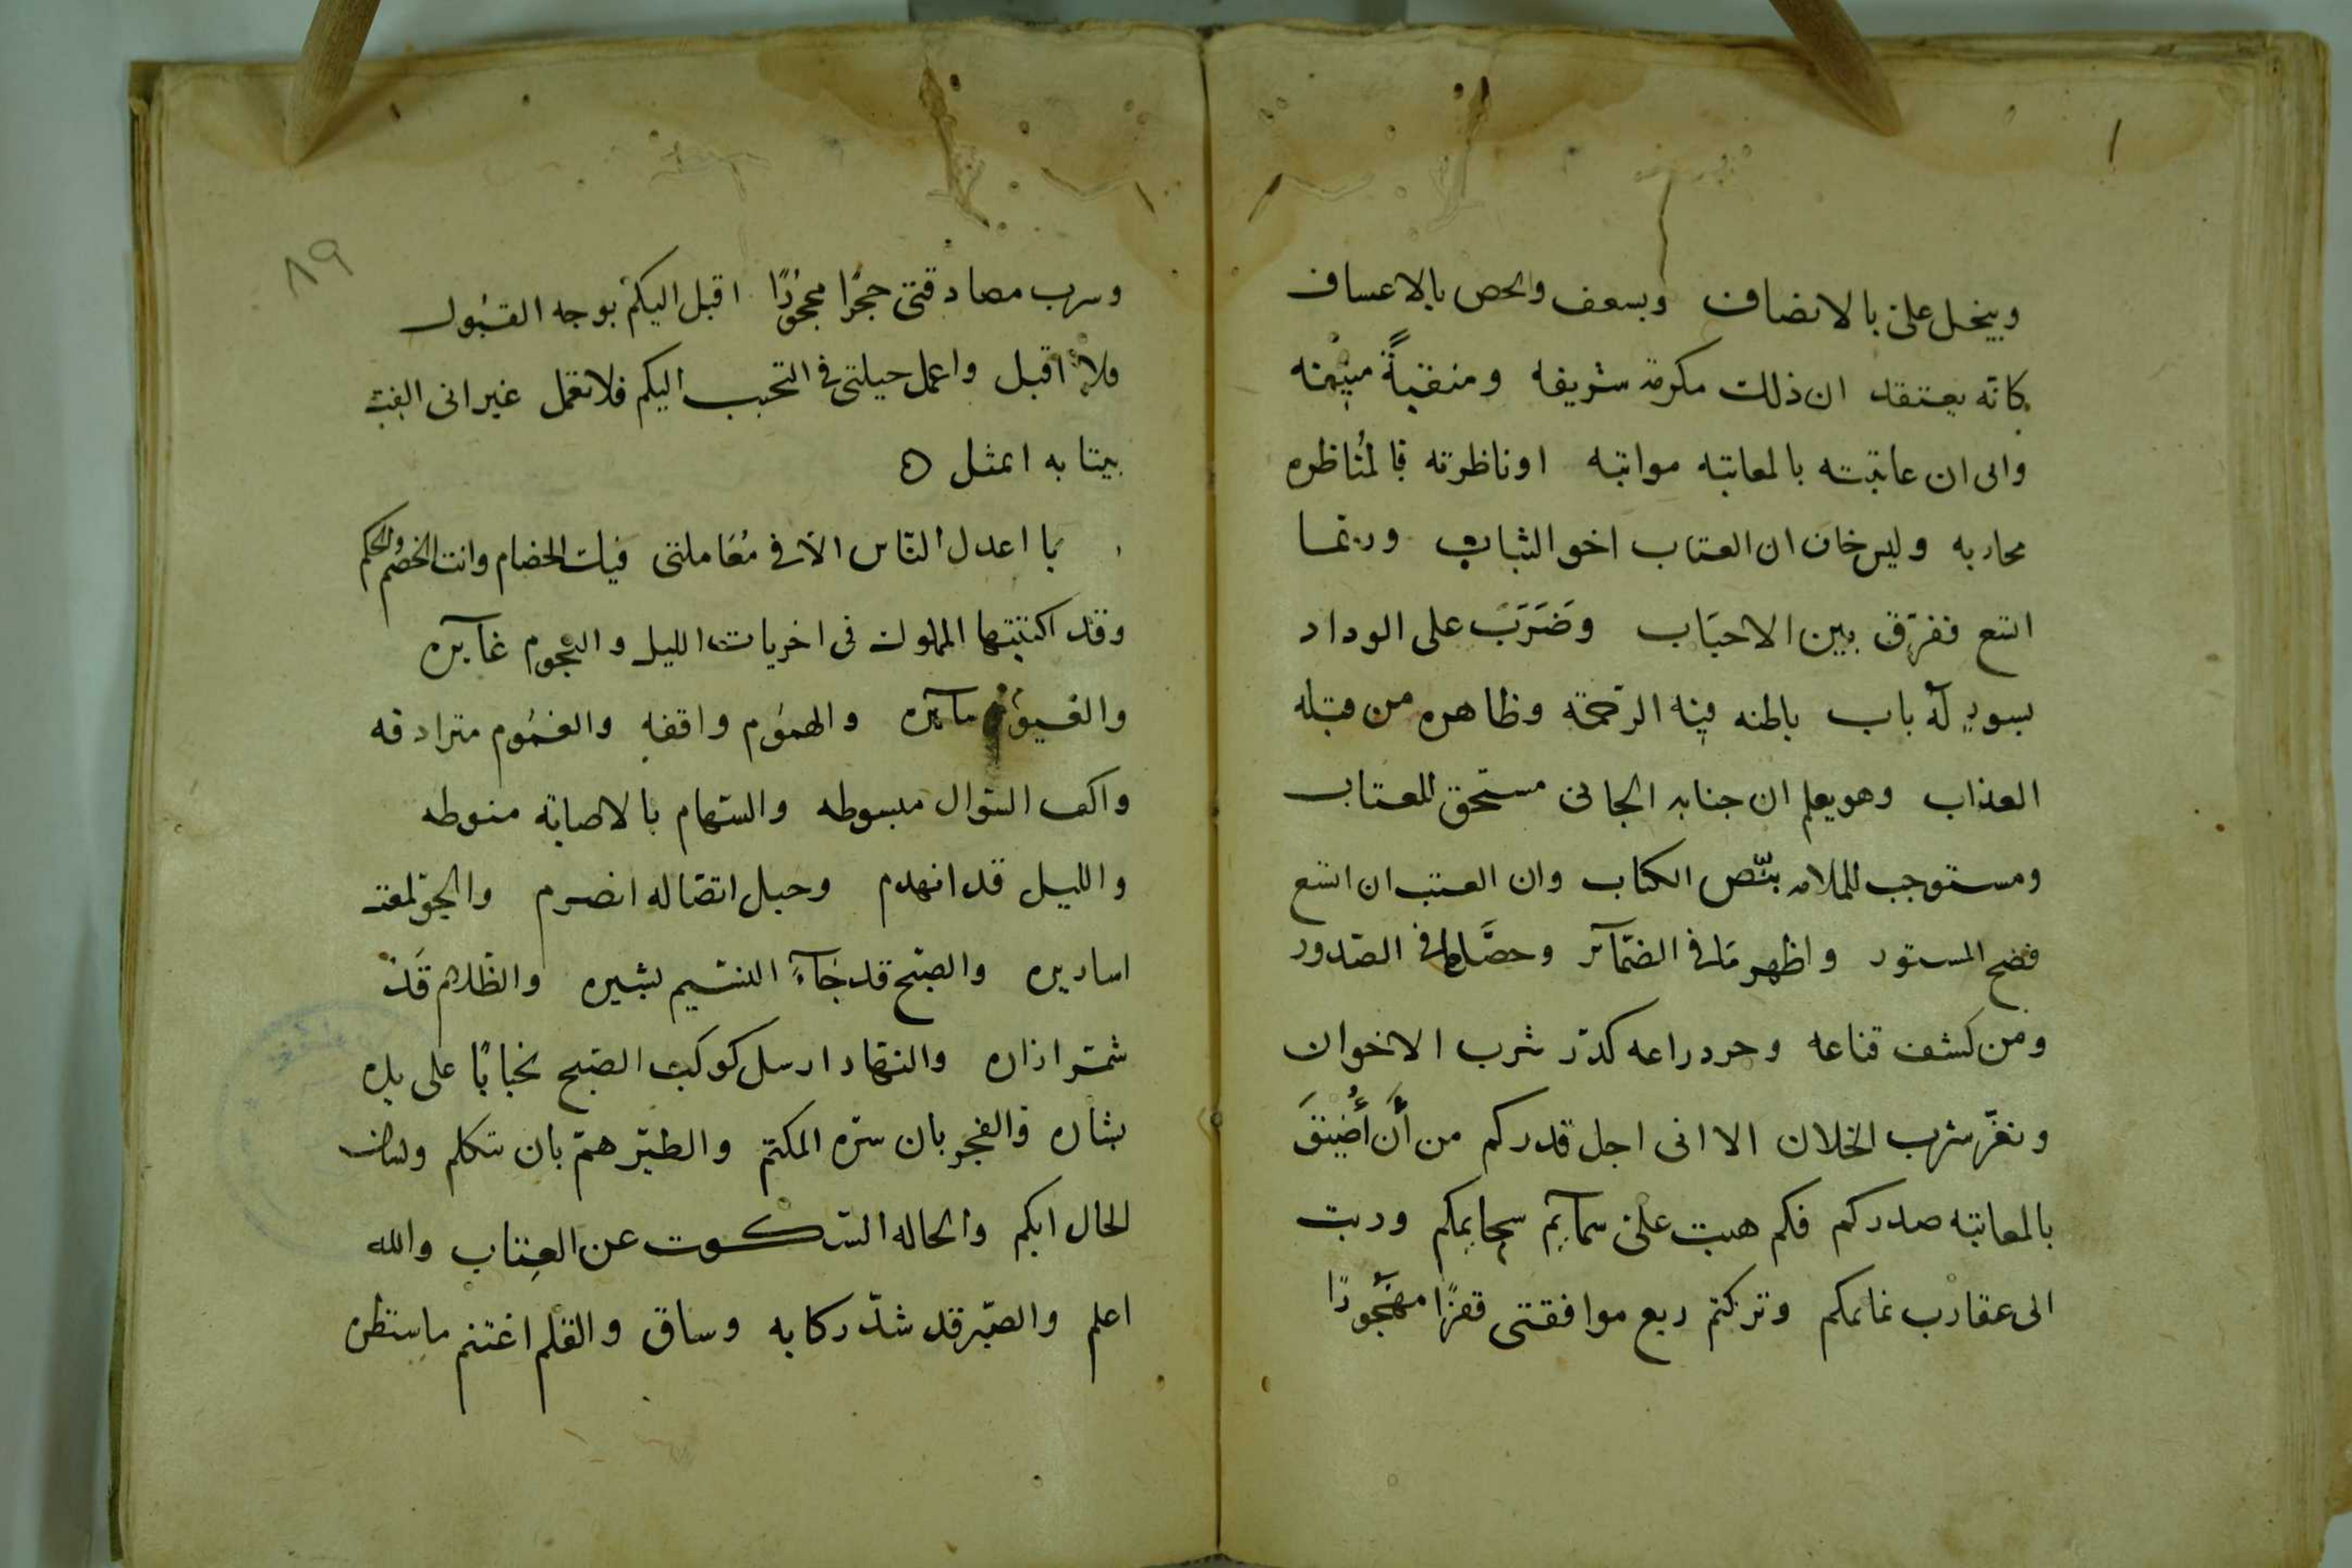 ويبخل علىّ بالانصاف وبسعف والحص بالاعساف
كانه يعتقد ان ذلك مكرمة شريفه ومنقبةً منيفه
وانى ان عاتبته بالمعاتبه مواتبه او ناظرته فالمُناظره
محاربه وليس خاف ان العتاب اخو السباب وربما
اتسع ففرّق بين الاحبَاب وضَرَبَ على الوداد
بسور له باب باطنه فيه الرّحمة وظاهره من قبله
العذاب وهو يعلم ان جنابه الجانى مستحق للعتاب
ومستوجب للملامه بنّص الكتاب وان العتب ان اتسع
فضح المستور واظهر مَا فى الضمآئر وحصَّل ما فى الصّدور
ومن كشف قناعه وجرد راعه كدّر شرب الاخوان
ونفّر سرب الخلان الا انى اجل قدركم من أَن أُضيّقَ
بالمعاتبه صدركم فكم هبت علىّ سمآيم سجايمكم ودبت
الى عقارب نمايمكم وتركتم ربع موافقتى قفرًا مهجُورًا
٨٩
وسرب مصادقتى حجرًا محجورًا اقبل اليكم بوجه القبُول
فلا اقبل واعمل حيلتى فى التحبب اليكم فلا تعمل غير انى الفيت
بيتا به اتمثل ه
يا اعدل النّاس الا فى مُعَاملتى فيك الخصام وانت الخصم والحكم
وقد اكتتبتها المملوك فى اخريات الليل والنجوم غآيره
والعيون سآئره والهمُوم واقفه والغمُوم مترادفه
واكف السّوال مبسوطه والسّهام بالاصابة منوطه
والليل قد انهدم وحبل اتصَاله انصرم والجوّ لمعت
اساريره والصبّح قد جَآءَ النسّيم بشيره والظّلام قَد
شمّر ازاره والنهّار ارسل كوكب الصّبح نجابًا على يده
بشاره والفجر بان سرّه المكتتم والطيّر همّ بان يتكلم ولسان
الحال ابكم والحاله السّكوت عن العِتاب والله
اعلم والصّبر قد شدّ ركابه وساق والقلم اغتنم ما سنظره